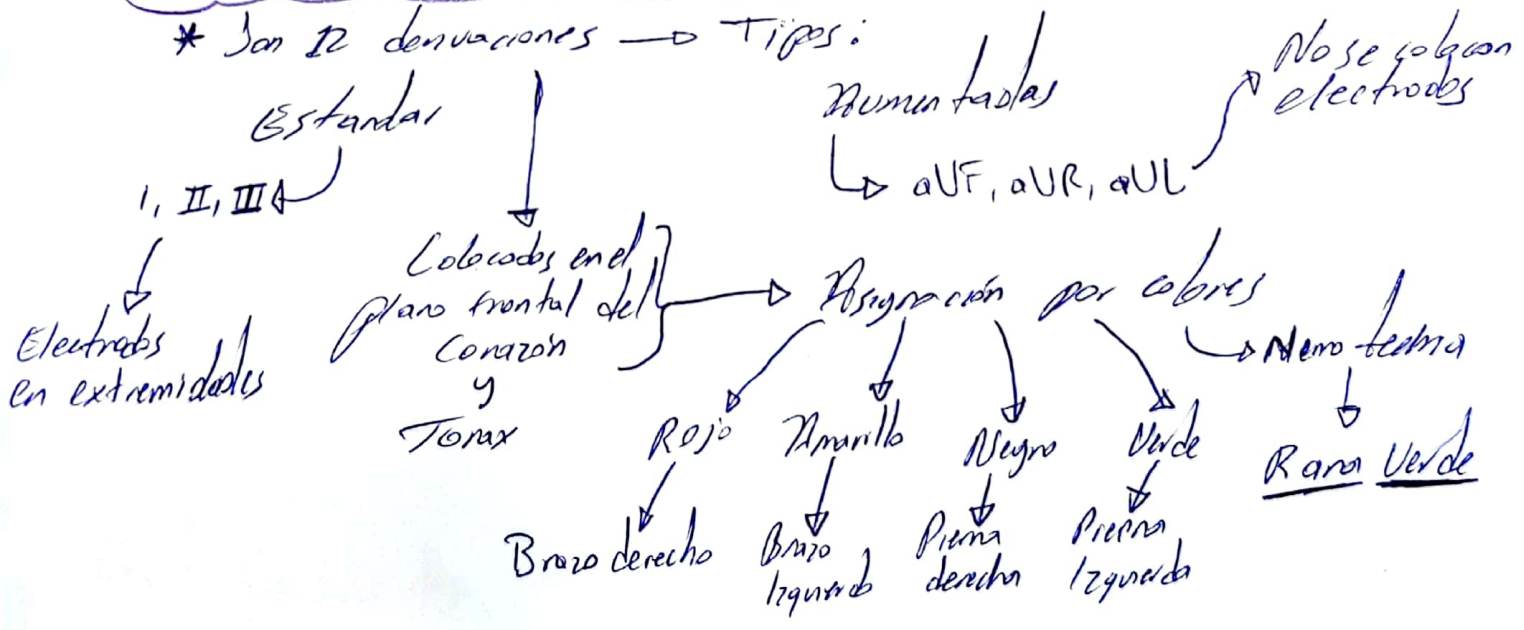 * Son 12 derivaciones → Tipos:
Estandar
I, II, III
Electrodos
en extremidades
Colocados en el
plano frontal del
Corazón
y
Torax
Aumentadas
aVF, aVR, aVL
No se colocan
electrodos
Asignación por colores
Nemotecnia
Rana Verde
Rojo
Brazo derecho
Amarillo
Brazo
Izquierdo
Negro
Pierna
derecha
Verde
Pierna
Izquierda